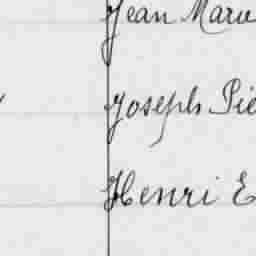 Jean Marie
Joseph Pie
Henri E